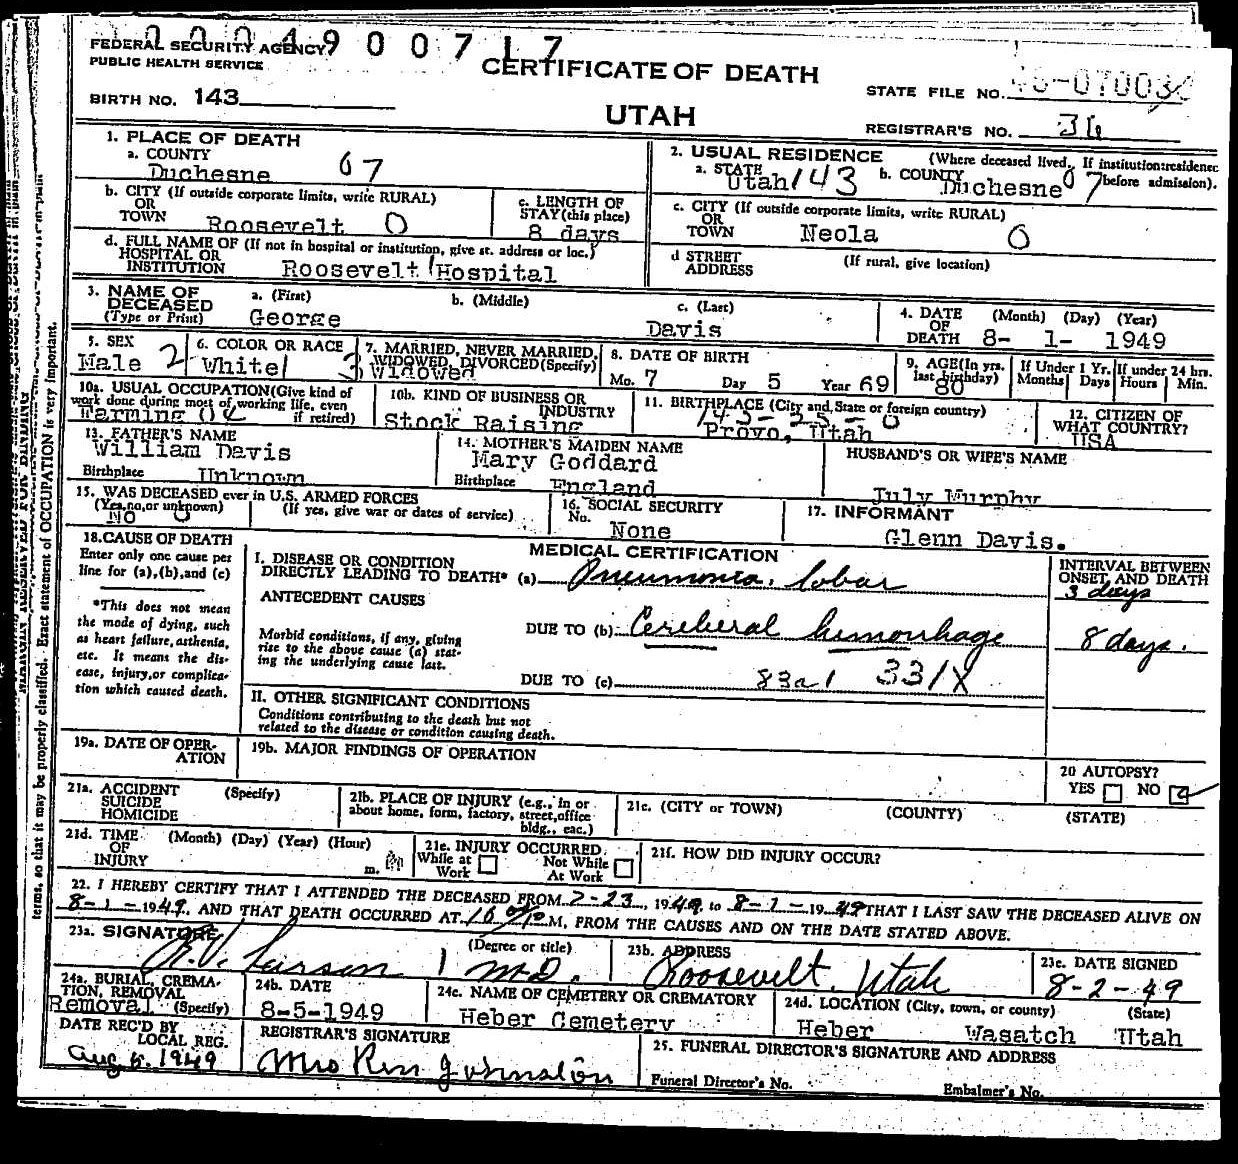 0 0 0 4 9 0 0 7 1 7
FEDERAL SECURITY AGENCY
PUBLIC HEALTH SERVICE
CERTIFICATE OF DEATH
STATE FILE NO.
BIRTH NO. 143
UTAH
REGISTRAR'S NO. 36
1. PLACE OF DEATH
a. COUNTY
Duchesne 07
2. USUAL RESIDENCE (Where deceased lived. If institution: residence before admission).
a. STATE Utah 143 b. COUNTY Duchesne 07
b. CITY (If outside corporate limits, write RURAL)
OR
TOWN Roosevelt 0
c. LENGTH OF
STAY (this place)
8 days
c. CITY (If outside corporate limits, write RURAL)
OR
TOWN Neola 0
d. FULL NAME OF (If not in hospital or institution, give st. address or loc.)
HOSPITAL OR
INSTITUTION Roosevelt Hospital
d STREET (If rural, give location)
ADDRESS
3. NAME OF DECEASED
(Type or Print)
a. (First) b. (Middle) c. (Last)
George Davis
4. DATE OF DEATH (Month) (Day) (Year)
8- 1- 1949
5. SEX
Male 2
6. COLOR OR RACE
White 1
7. MARRIED, NEVER MARRIED,
WIDOWED, DIVORCED (Specify)
3 Widowed
8. DATE OF BIRTH
Mo. 7 Day 5 Year 69
9. AGE (In yrs. last birthday)
80
If Under 1 Yr.
Months Days
If under 24 hrs.
Hours Min.
10a. USUAL OCCUPATION (Give kind of
work done during most of working life, even
if retired)
Farming
10b. KIND OF BUSINESS OR
INDUSTRY
Stock Raising
11. BIRTHPLACE (City and State or foreign country)
Provo, Utah
12. CITIZEN OF
WHAT COUNTRY?
USA
13. FATHER'S NAME
William Davis
Birthplace Unknown
14. MOTHER'S MAIDEN NAME
Mary Goddard
Birthplace England
HUSBAND'S OR WIFE'S NAME
July Murphy
15. WAS DECEASED ever in U.S. ARMED FORCES
(Yes, no, or unknown) (If yes, give war or dates of service)
No 0
16. SOCIAL SECURITY
No. None
17. INFORMANT
Glenn Davis.
18. CAUSE OF DEATH
Enter only one cause per
line for (a), (b), and (c)
*This does not mean
the mode of dying, such
as heart failure, asthenia,
etc. It means the dis-
ease, injury, or complica-
tion which caused death.
MEDICAL CERTIFICATION
I. DISEASE OR CONDITION
DIRECTLY LEADING TO DEATH* (a) Pneumonia, lobar
ANTECEDENT CAUSES
Morbid conditions, if any, giving
rise to the above cause (a) stat-
ing the underlying cause last.
DUE TO (b) Cereberal hemorrhage
DUE TO (c) 83a1 331X
INTERVAL BETWEEN
ONSET AND DEATH
3 days
8 days.
II. OTHER SIGNIFICANT CONDITIONS
Conditions contributing to the death but not
related to the disease or condition causing death.
19a. DATE OF OPER-
ATION
19b. MAJOR FINDINGS OF OPERATION
20 AUTOPSY?
YES NO
21a. ACCIDENT (Specify)
SUICIDE
HOMICIDE
21b. PLACE OF INJURY (e.g., in or
about home, form, factory, street, office
bldg., eac.)
21c. (CITY or TOWN) (COUNTY) (STATE)
21d. TIME (Month) (Day) (Year) (Hour)
OF
INJURY m.
21e. INJURY OCCURRED
While at Work Not While At Work
21f. HOW DID INJURY OCCUR?
22. I HEREBY CERTIFY THAT I ATTENDED THE DECEASED FROM 7-23, 1949 to 8-1-1949 THAT I LAST SAW THE DECEASED ALIVE ON
8-1-1949, AND THAT DEATH OCCURRED AT 10 M, FROM THE CAUSES AND ON THE DATE STATED ABOVE.
23a. SIGNATURE (Degree or title)
R.V. Larson M.D.
23b. ADDRESS
Roosevelt, Utah
23c. DATE SIGNED
8-2-49
24a. BURIAL, CREMA-
TION, REMOVAL
Removal (Specify)
24b. DATE
8-5-1949
24c. NAME OF CEMETERY OR CREMATORY
Heber Cemetery
24d. LOCATION (City, town, or county) (State)
Heber Wasatch Utah
DATE REC'D BY
LOCAL REG.
Aug 5, 1949
REGISTRAR'S SIGNATURE
Mrs Ren Johnston
25. FUNERAL DIRECTOR'S SIGNATURE AND ADDRESS
Funeral Director's No. Embalmer's No.
MARGIN RESERVED FOR BINDING
terms, so that it may be properly classified. Exact statement of OCCUPATION is very important.